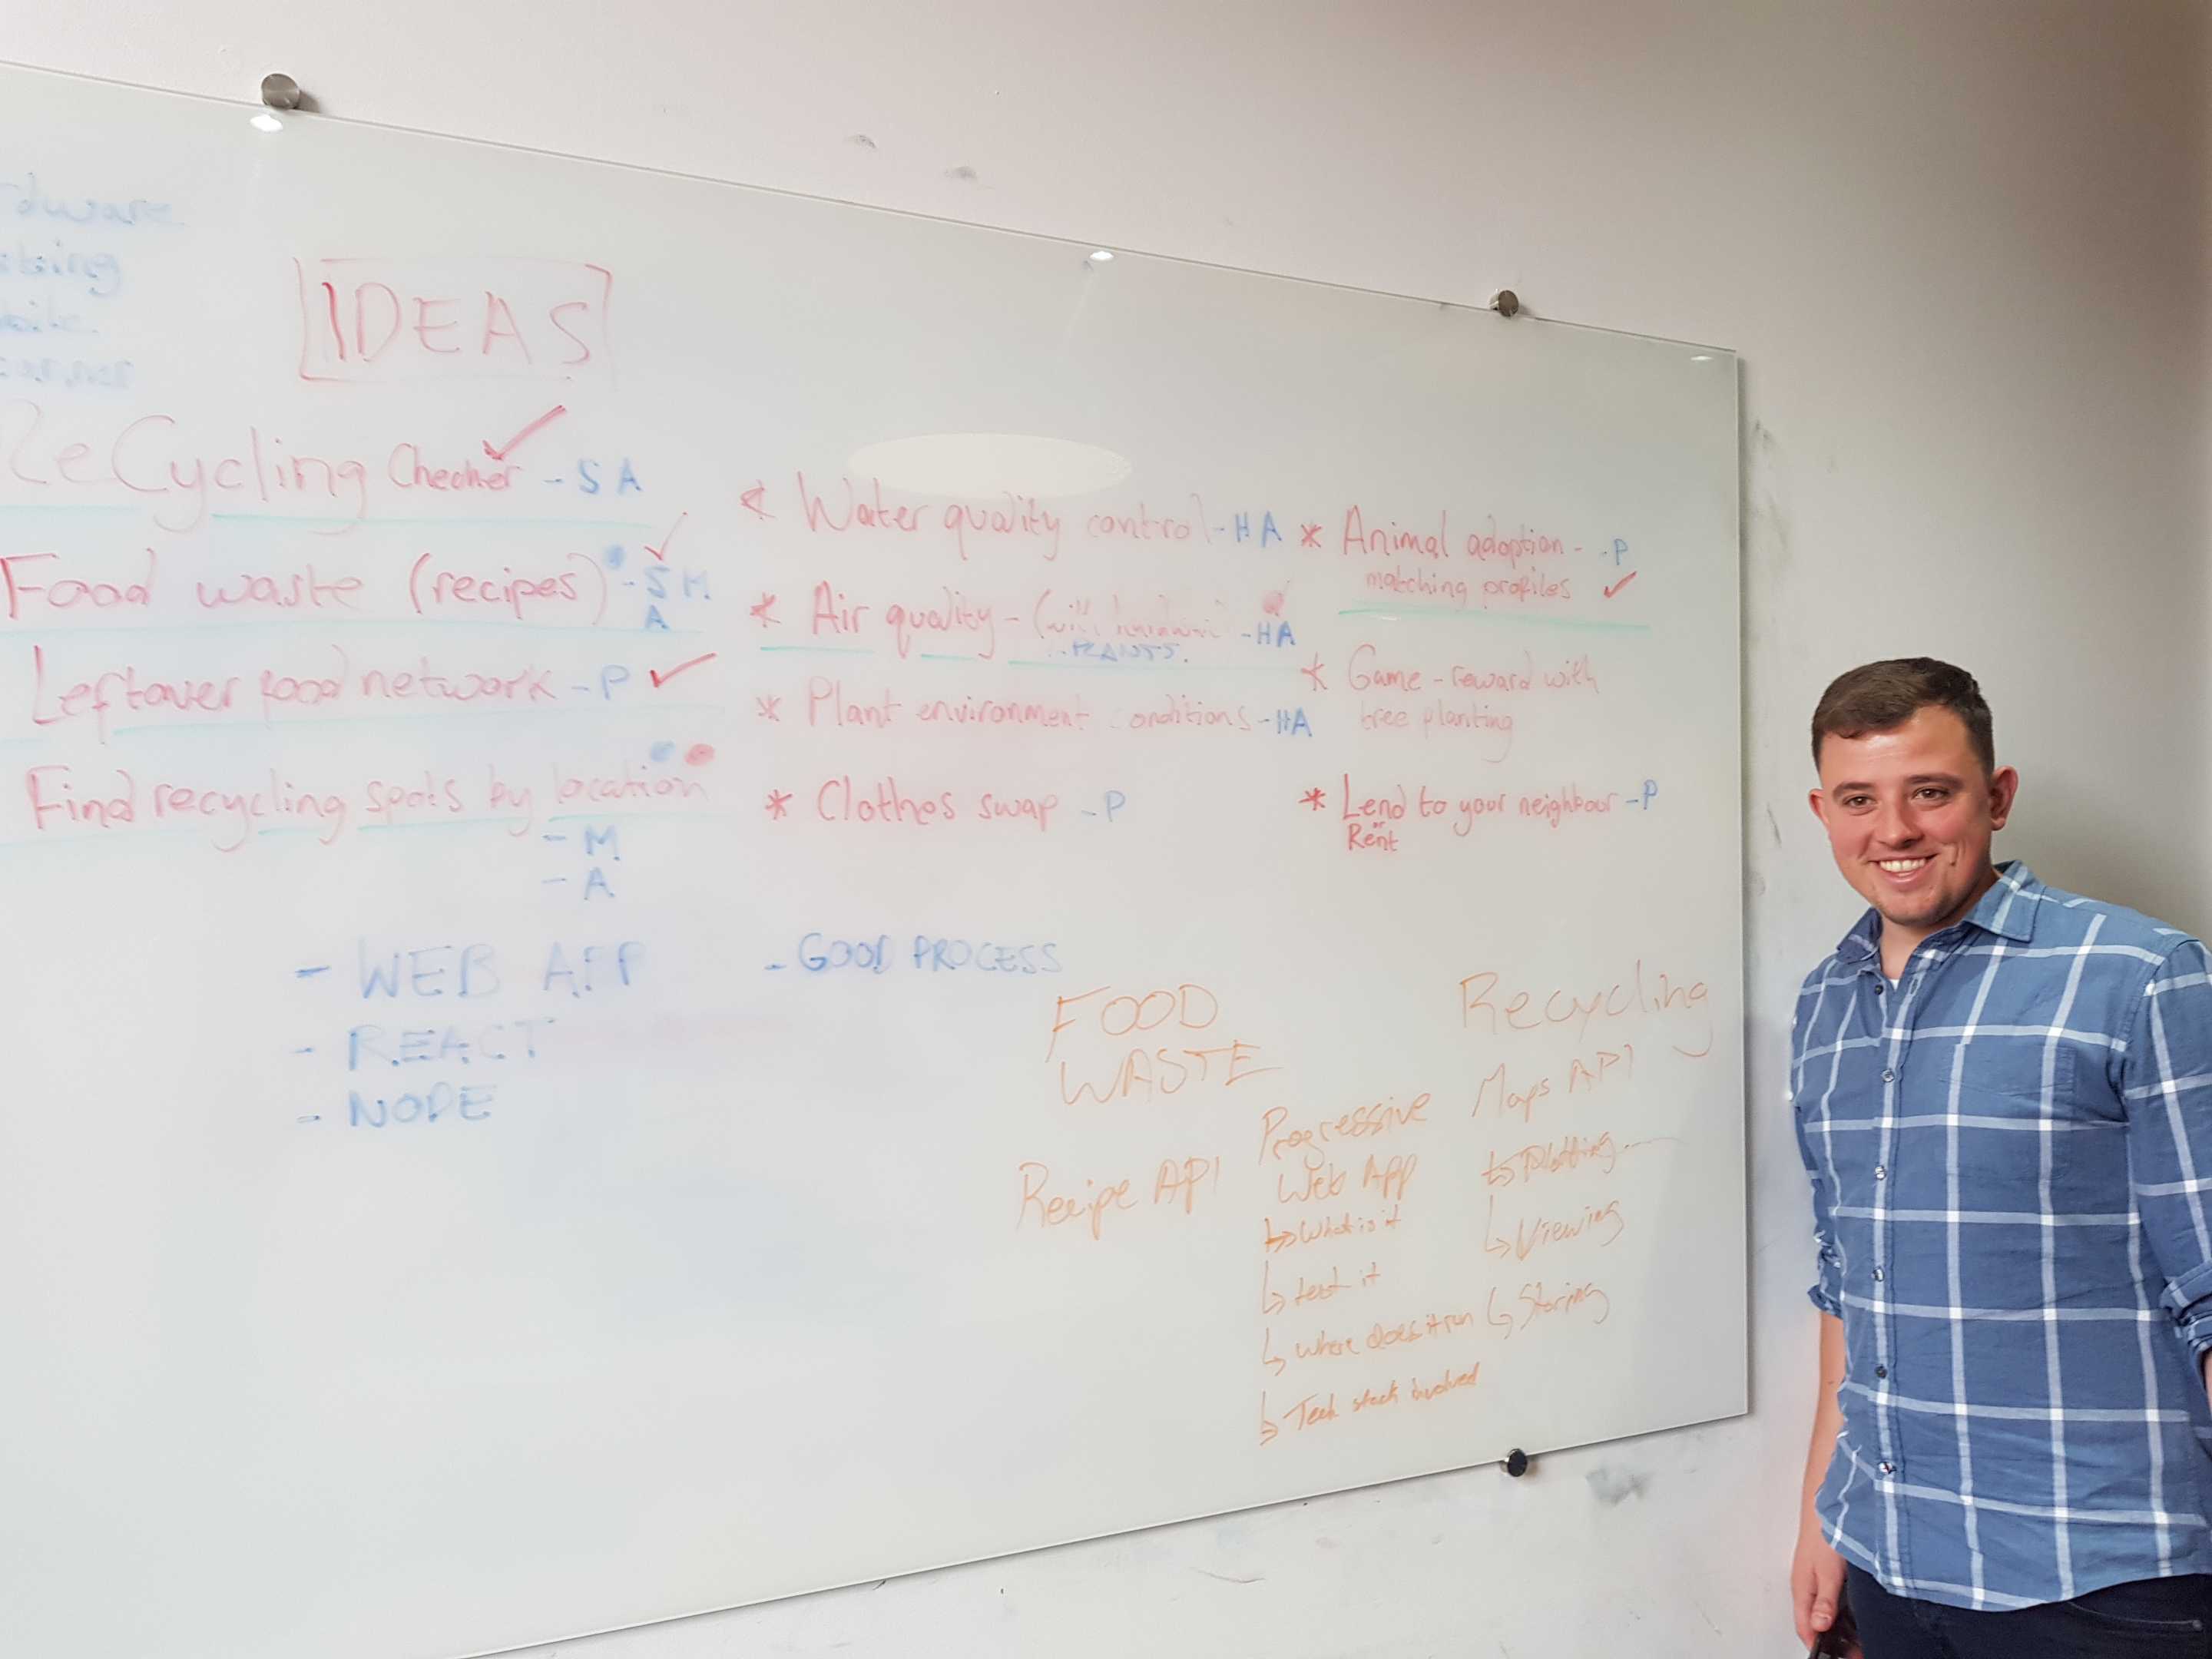 IDEAS
ReCycling Checker - S A
Food waste (recipes) - S M
A
Leftover food network - P
Find recycling spots by location
- M
- A
* Water quality control - H A
* Air quality - ( - HA
* Plant environment conditions - HA
* Clothes swap - P
* Animal adoption - - P
matching profiles
* Game - reward with
tree planting
* Lend to your neighbour - P
or
Rent
- WEB APP
- REACT
- NODE
- GOOD PROCESS
FOOD
WASTE
Recipe API
Progressive
Web App
↳ What is it
↳ test it
↳ where does it run
↳ Tech stack involved
Recycling
Maps API
↳ Plotting
↳ Viewing
↳ Storing